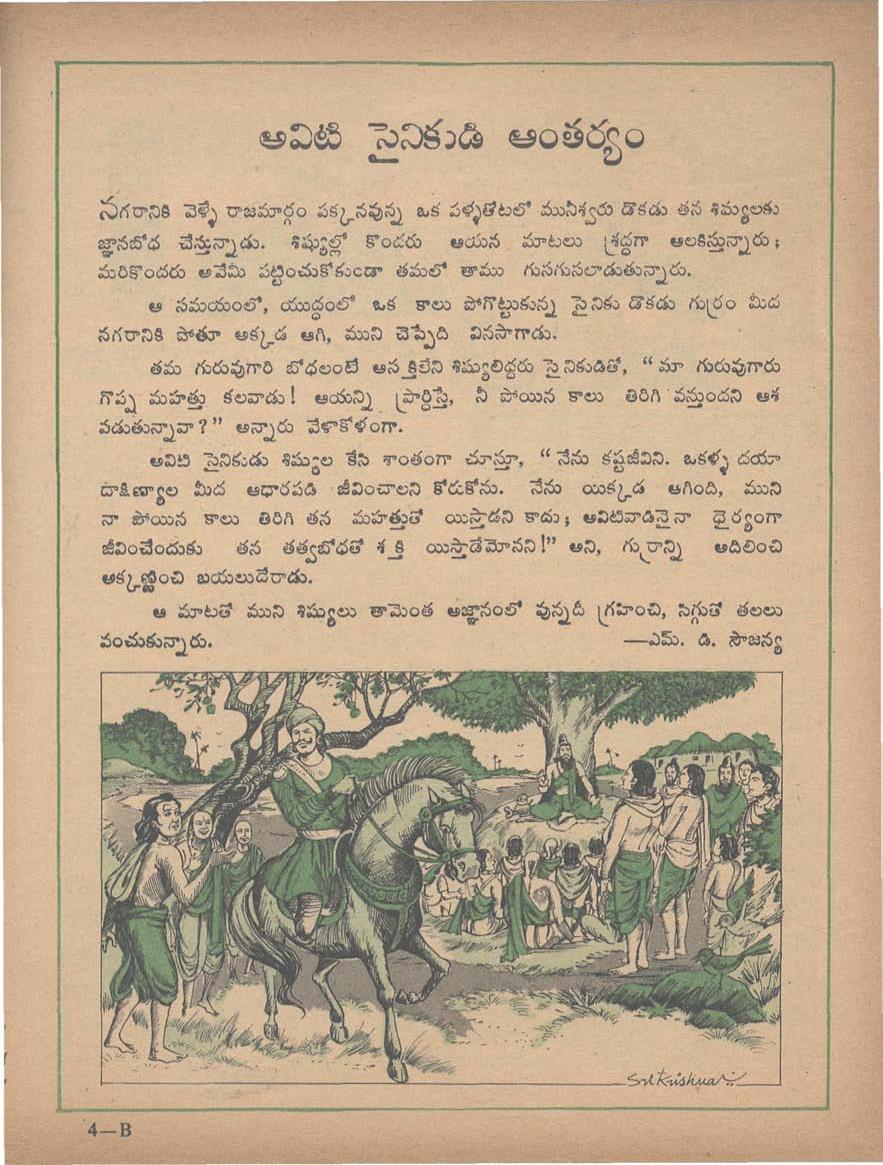 అవిటి సైనికుడి ఆంతర్యం
నగరానికి వెళ్ళే రాజమార్గం పక్కనవున్న ఒక పళ్ళతోటలో మునీశ్వరు డొకడు తన శిష్యులకు
జ్ఞానబోధ చేస్తున్నాడు. శిష్యుల్లో కొందరు ఆయన మాటలు శ్రద్ధగా ఆలకిస్తున్నారు;
మరికొందరు అవేమీ పట్టించుకోకుండా తమలో తాము గుసగుసలాడుతున్నారు.
ఆ సమయంలో, యుద్ధంలో ఒక కాలు పోగొట్టుకున్న సైనికు డొకడు గుర్రం మీద
నగరానికి పోతూ అక్కడ ఆగి, ముని చెప్పేది వినసాగాడు.
తమ గురువుగారి బోధలంటే ఆసక్తిలేని శిష్యులిద్దరు సైనికుడితో, “మా గురువుగారు
గొప్ప మహత్తు కలవాడు! ఆయన్ని ప్రార్ధిస్తే, నీ పోయిన కాలు తిరిగి వస్తుందని ఆశ
పడుతున్నావా?” అన్నారు వేళాకోళంగా.
అవిటి సైనికుడు శిష్యుల కేసి శాంతంగా చూస్తూ, “నేను కష్టజీవిని. ఒకళ్ళ దయా
దాక్షిణ్యాల మీద ఆధారపడి జీవించాలని కోరుకోను. నేను యిక్కడ ఆగింది, ముని
నా పోయిన కాలు తిరిగి తన మహత్తుతో యిస్తాడని కాదు; అవిటివాడినైనా ధైర్యంగా
జీవించేందుకు తన తత్వబోధతో శక్తి యిస్తాడేమోనని!” అని, గుర్రాన్ని అదిలించి
అక్కణ్ణించి బయలుదేరాడు.
ఆ మాటతో ముని శిష్యులు తామెంత అజ్ఞానంలో వున్నదీ గ్రహించి, సిగ్గుతో తలలు
వంచుకున్నారు. —ఎమ్. డి. సౌజన్య
Srikrishna
4—B